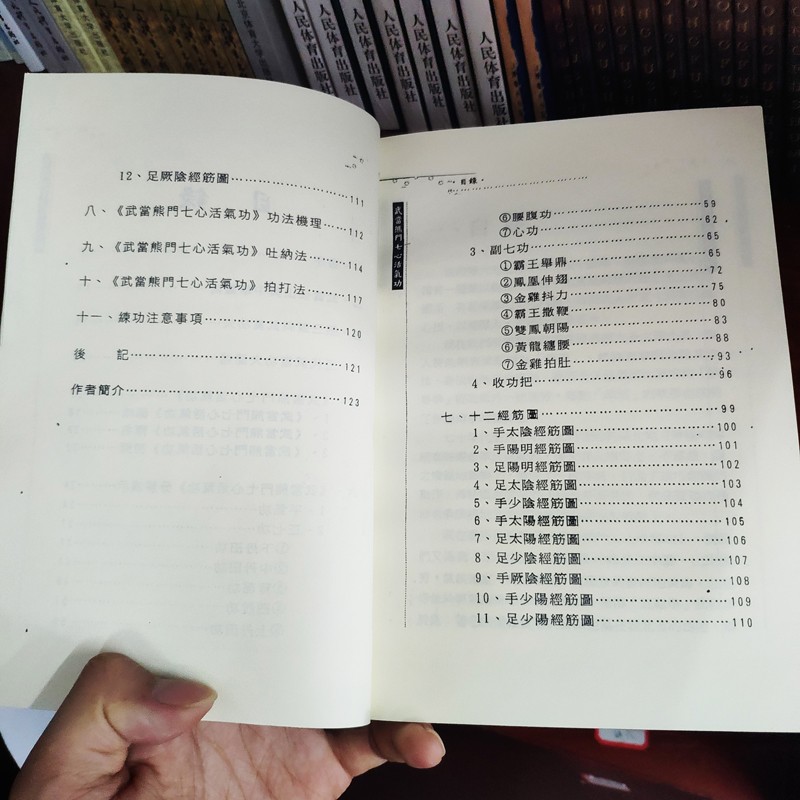 人民体育出版社
人民体育出版社
人民体育出版社
人民体育出版社
人民体育出版社
人民体育出版社
·目錄·
武當熊門七心活氣功
⑥腰腹功……59
⑦心功……62
3、副七功……65
①霸王舉鼎……65
②鳳凰伸翅……72
③金雞抖力……75
④霸王撒鞭……80
⑤雙鳳朝陽……83
⑥黃龍纏腰……88
⑦金雞拍肚……93
4、收功把……96
七、十二經筋圖……99
1、手太陰經筋圖……100
2、手陽明經筋圖……101
3、足陽明經筋圖……102
4、足太陰經筋圖……103
5、手少陰經筋圖……104
6、手太陽經筋圖……105
7、足太陽經筋圖……106
8、足少陰經筋圖……107
9、手厥陰經筋圖……108
10、手少陽經筋圖……109
11、足少陽經筋圖……110
12、足厥陰經筋圖……111
八、《武當熊門七心活氣功》功法機理……112
九、《武當熊門七心活氣功》吐納法……114
十、《武當熊門七心活氣功》拍打法……117
十一、練功注意事項……120
後 記……121
作者簡介……123